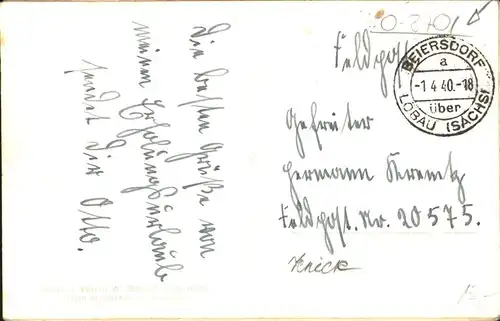 Die besten Grüße von
meinem Erholungsurlaub
sendet Dir Otto.
Feldpost
BEIERSDORF
a
-1.4.40.-18
über
LÖBAU (SACHS)
Gefreiter
Hermann
Feldpost. Nr. 20575.
Knick